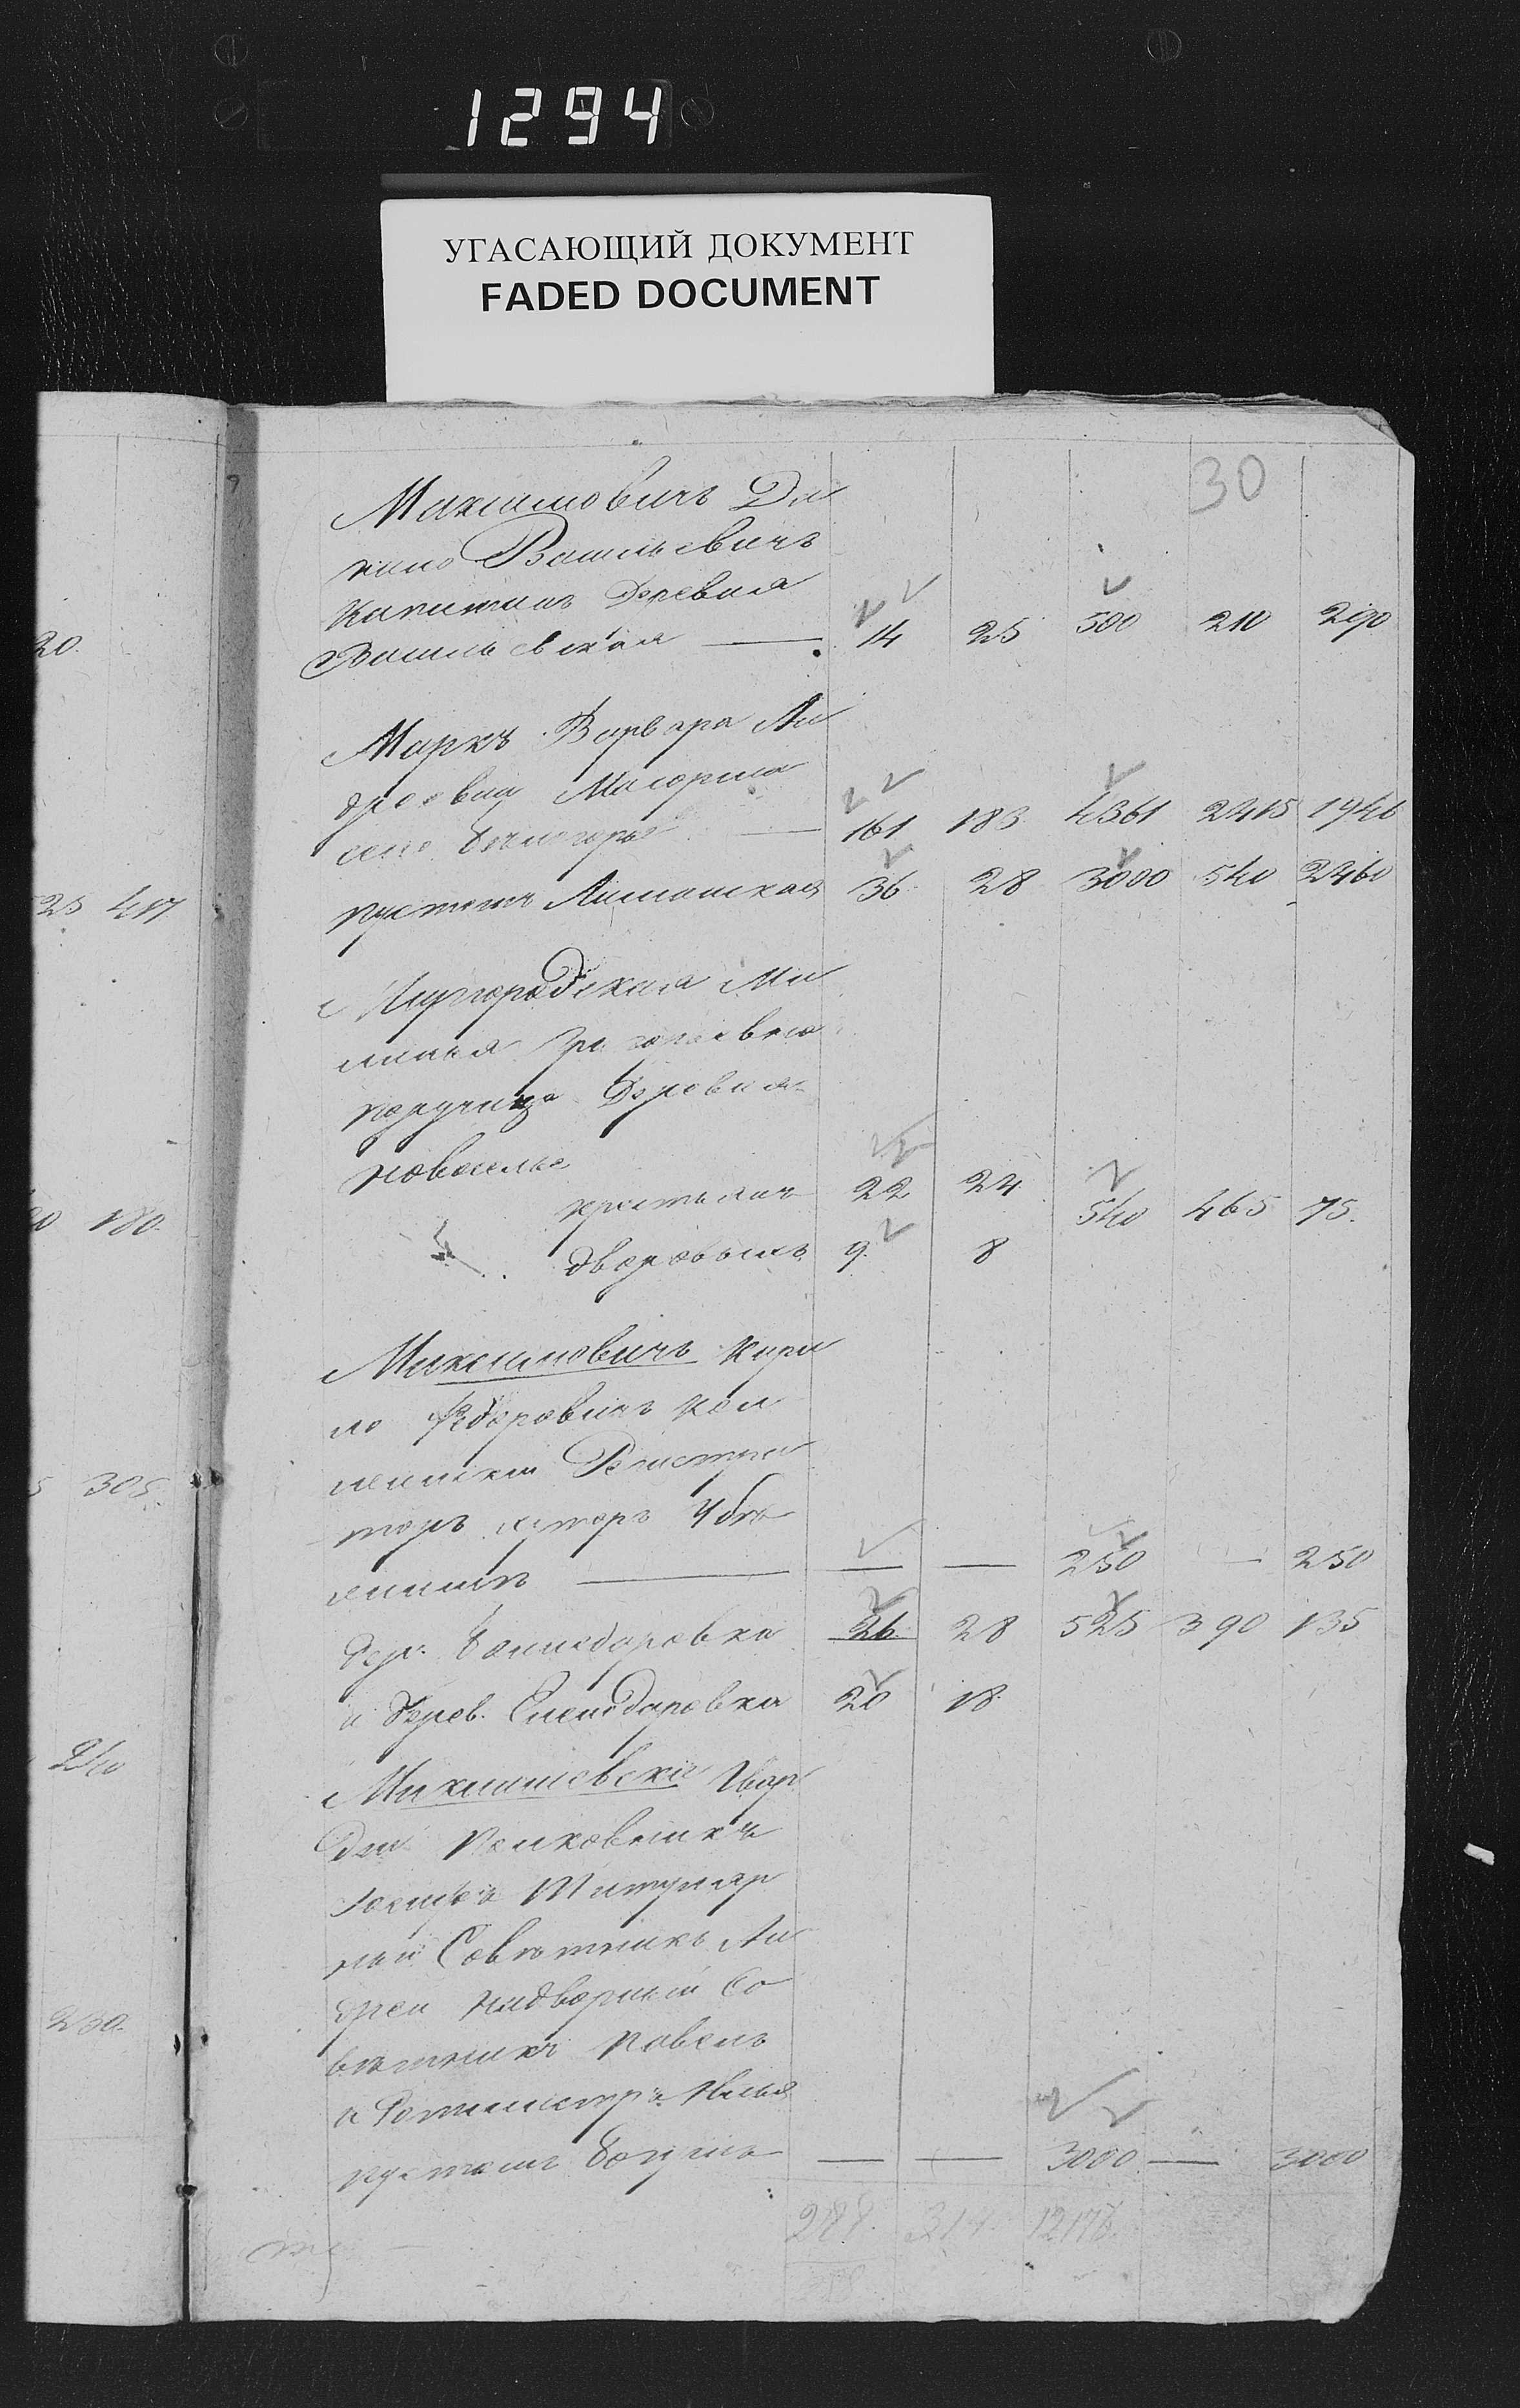 1294
УГАСАЮЩИЙ ДОКУМЕНТ
FADED DOCUMENT
30
Максимовичъ Да
нило Васильевичъ
Капитанъ Деревня
Васильевская — 14 25 500 210 290
Маркъ Варвара Ан
дреевна Маіорша
село Бѣлогорье — 161 183 4361 2415 1946
пустошь Лиманская 36 28 3000 540 2460
Миргородская Ма
Григорьевна
поручица Деревня
Новоселье
крестьянъ 22 24 540 465 75.
дворовыхъ 9. 8
Максимовичъ Кири
ло Федоровичъ Кол
лежскій Регистра
торъ хуторъ
— — 250 — 250
Дер. 26. 28 525 390 135
и Дерев. 20 18.
Миклашевскіе Гвар
діи Полковникъ
Титуляр
ный Совѣтникъ Ан
дрей Надворный Со
вѣтникъ Павелъ
и Ротмистръ Илья
пустошь — — 3000 — 3000
288. 314. 12176.
20.
25 417
180.
305.
240
230.